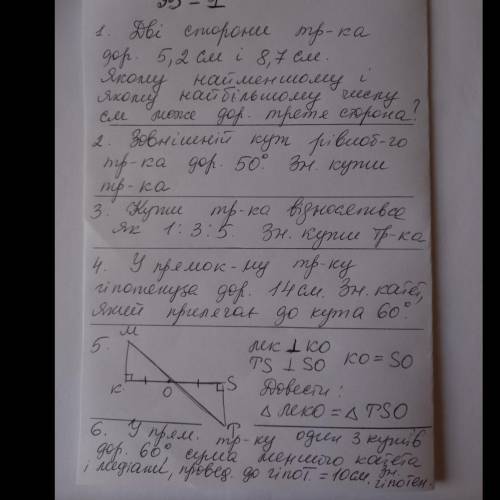 1. Дві сторони тр-ка
дор. 5,2 см і 8,7 см.
Якому найменшому і
якому найбільшому числу
см може дор. третя сторона?
2. Зовнішній кут рівноб-го
тр-ка дор. 50°. Зн. кути
тр-ка
3. Кути тр-ка відносяться
як 1:3:5. Зн. кути тр-ка
4. У прямок-му тр-ку
гіпотенуза дор. 14 см. Зн. катет,
який прилягає до кута 60°.
5. M
K O S
T
MK ⊥ KO
TS ⊥ SO KO = SO
Довести:
△ MKO = △ TSO
6. У прям. тр-ку один з кутів
дор. 60° сума меншого катета
і медіани, провед. до гіпот. = 10см. Зн.
гіпотен.